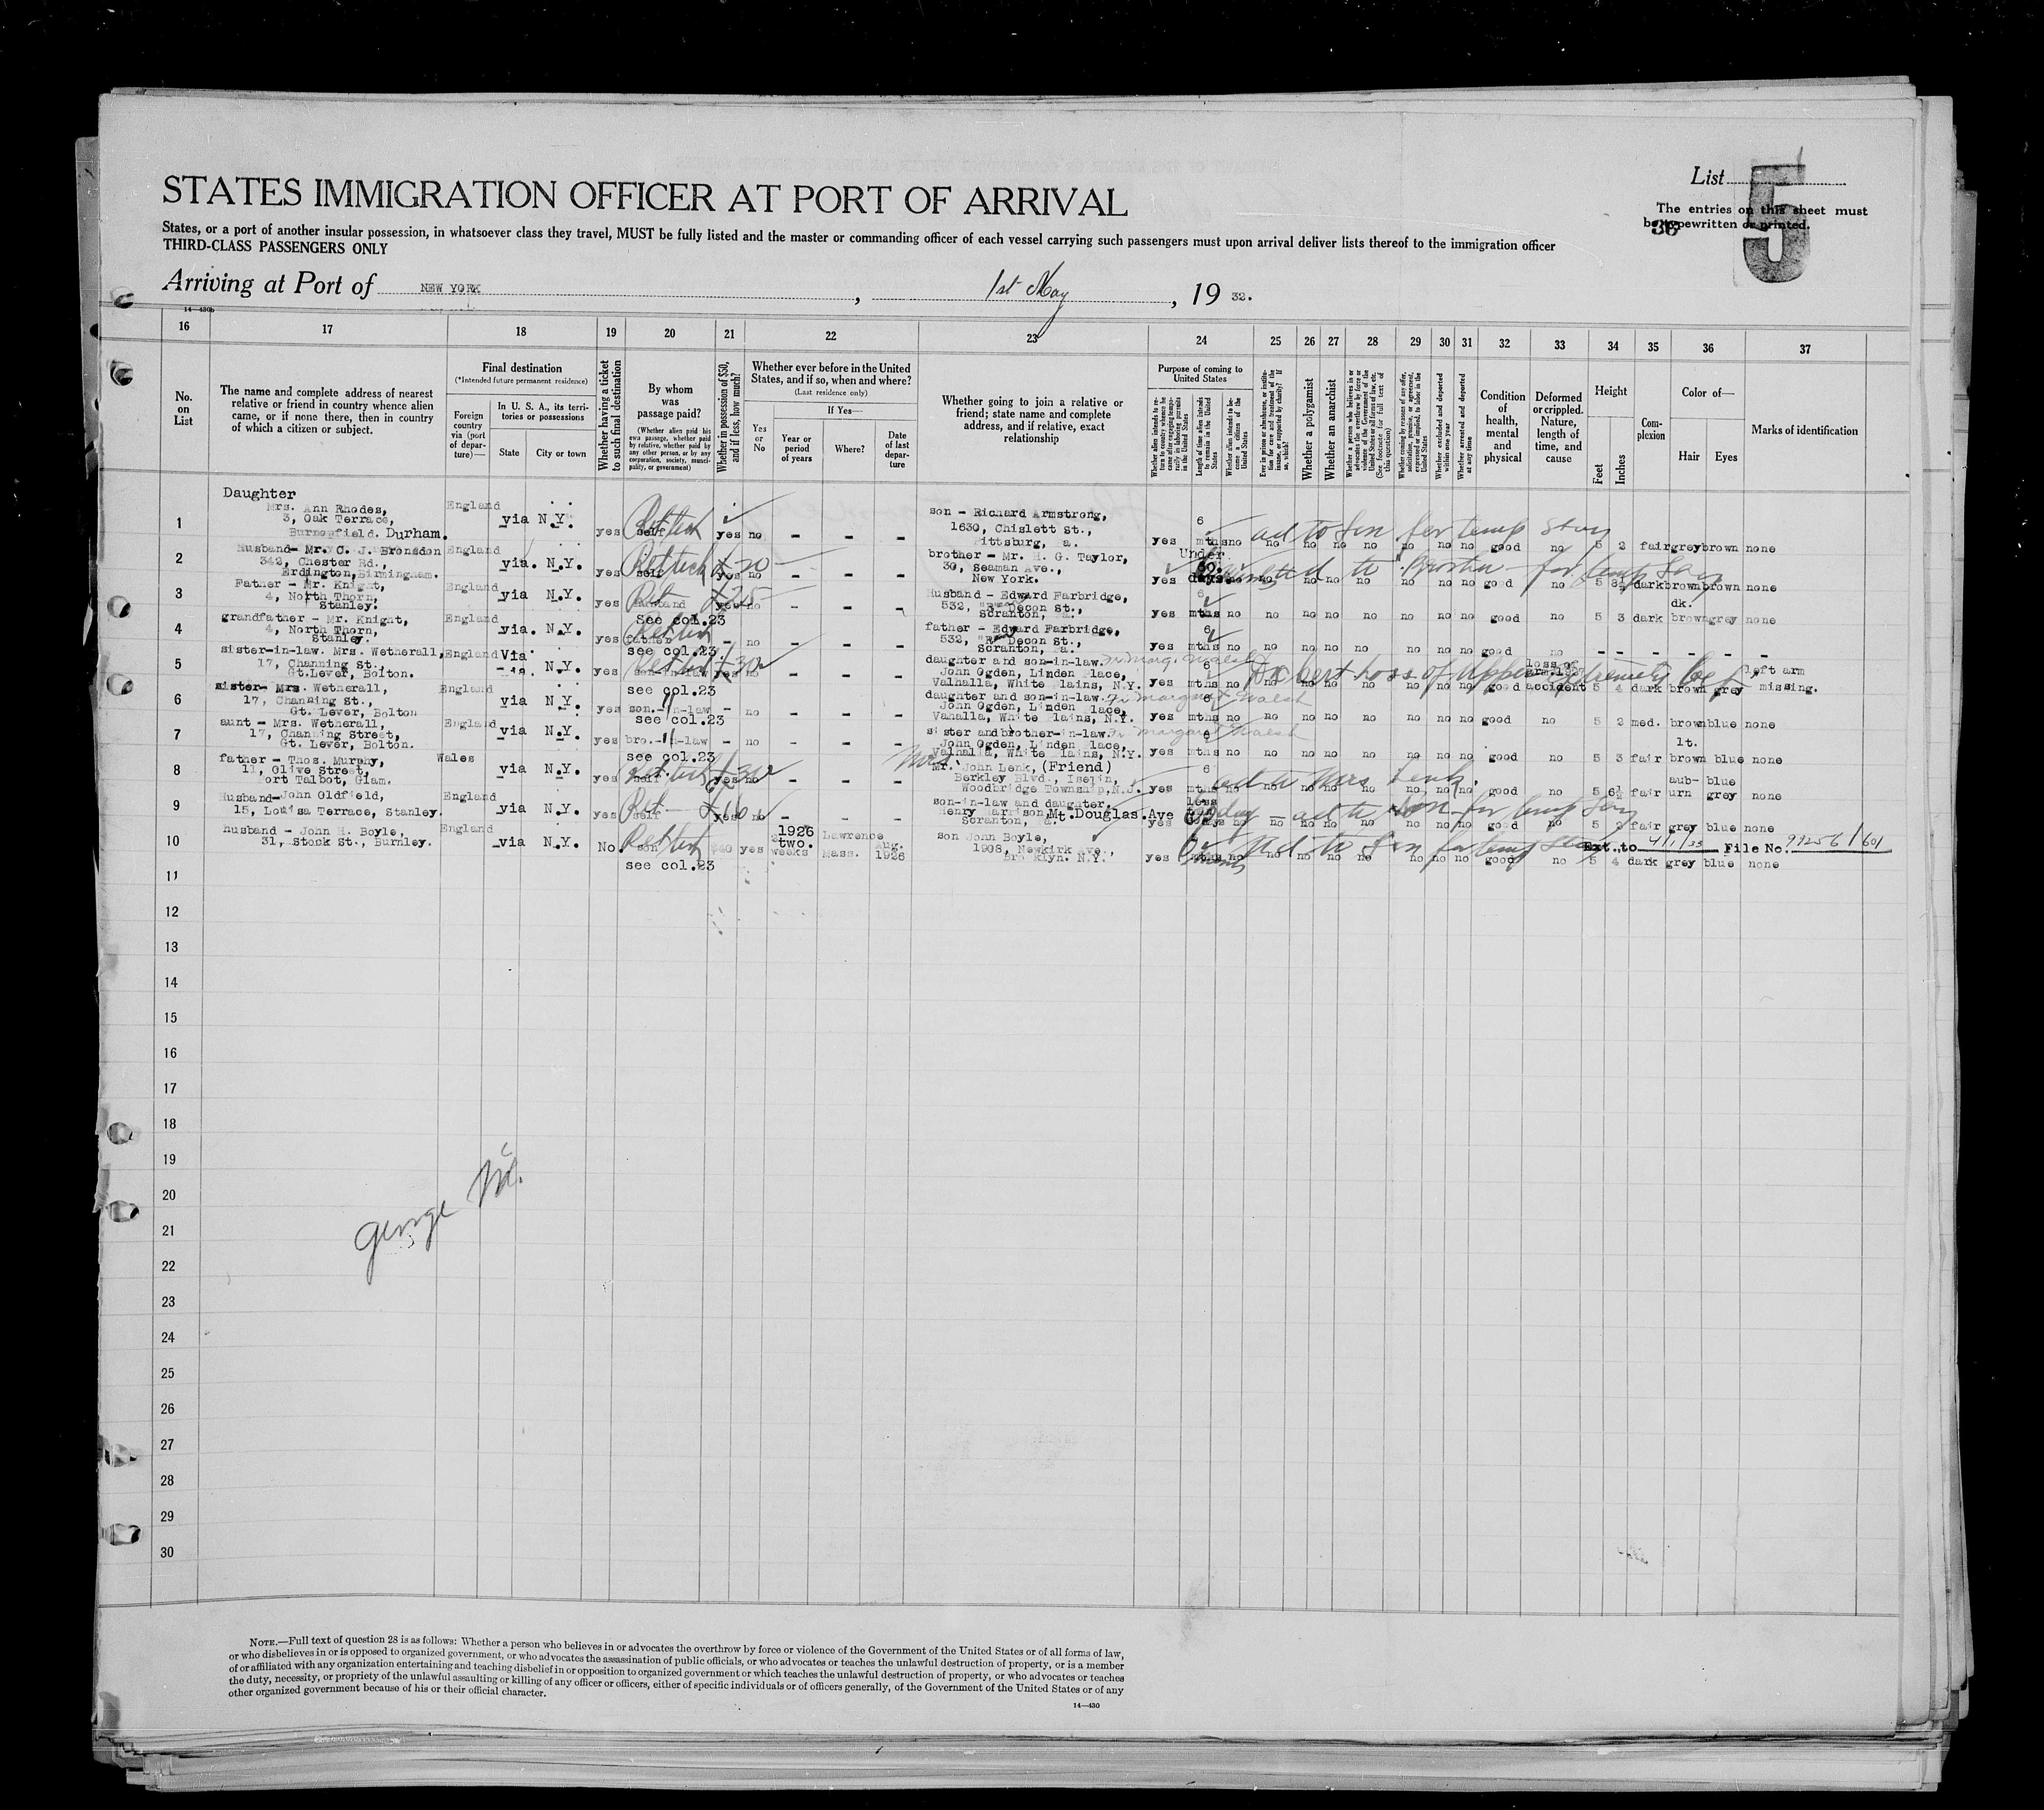 STATES IMMIGRATION OFFICER AT PORT OF ARRIVAL
List 5
The entries on this sheet must
be typewritten or printed.
36
States, or a port of another insular possession, in whatsoever class they travel, MUST be fully listed and the master or commanding officer of each vessel carrying such passengers must upon arrival deliver lists thereof to the immigration officer
THIRD-CLASS PASSENGERS ONLY
Arriving at Port of NEW YORK, 1st May, 19 32.
14—430b
16 17 18 19 20 21 22 23 24 25 26 27 28 29 30 31 32 33 34 35 36 37
No. on List
The name and complete address of nearest relative or friend in country whence alien came, or if none there, then in country of which a citizen or subject.
Final destination
(*Intended future permanent residence)
Foreign country via (port of departure)—
In U. S. A., its territories or possessions
State
City or town
Whether having a ticket to such final destination
By whom was passage paid?
(Whether alien paid his own passage, whether paid by relative, whether paid by any other person, or by any corporation, society, municipality, or government)
Whether in possession of $50, and if less, how much?
Whether ever before in the United States, and if so, when and where?
(Last residence only)
Yes or No
If Yes—
Year or period of years
Where?
Date of last departure
Whether going to join a relative or friend; state name and complete address, and if relative, exact relationship
Purpose of coming to United States
Length of time alien intends to remain in the United States
Whether alien intends to become a citizen of the United States
Whether a polygamist
Whether an anarchist
(See footnote for full text of this question)
Whether excluded and deported within one year
Whether arrested and deported at any time
Condition of health, mental and physical
Deformed or crippled. Nature, length of time, and cause
Height
Feet
Inches
Complexion
Color of—
Hair
Eyes
Marks of identification
1 Daughter
Mrs. Ann Rhodes,
3, Oak Terrace,
Burnopfield. Durham.
England via N.Y. yes self yes no – – –
son - Richard Armstrong,
1630, Chislett St.,
Pittsburg, Pa.
yes 6 mths no ad to Son for temp stay
no no no no no no no good no 5 2 fair grey brown none
2 Husband- Mr. C. J. Bronsdon
342, Chester Rd.,
Erdington, Birmingham.
England via. N.Y. yes self yes no – – –
brother - Mr. H. G. Taylor,
30, Seaman Ave.,
New York.
yes Under 60. days. no
no no no no no no no good no 5 3½ dark brown brown none
3 Father - Mr. Knight,
4, North Thorn,
Stanley.
England via N.Y. yes husband yes no – – –
see col.23
Husband - Edward Farbridge,
532, "R" Decon St.,
Scranton, Pa.
yes 6 mths no no no no no no no no good no 5 3 dark dk. brown grey none
4 grandfather - Mr. Knight,
4, North Thorn,
Stanley.
England via. N.Y. yes father – no – – –
see col.23
father - Edward Farbridge,
532, "R" Decon St.,
Scranton, Pa.
yes 6 mths no no no no no no no no good no – – – – – –
5 sister-in-law. Mrs. Wetherall,
17, Channing St.,
Gt.Lever, Bolton.
England Via N.Y. yes son-in-law yes no – – –
see col.23
daughter and son-in-law.
John Ogden, Linden Place,
Valhalla, White Plains, N.Y.
yes 6 mths no no no no no no no no good accident 5 4 dark brown grey left arm missing.
6 sister- Mrs. Wetherall,
17, Channing St.,
Gt. Lever, Bolton
England via N.Y. yes son.-in-law – no – – –
see col.23
daughter and son-in-law.
John Ogden, Linden Place,
Vahalla, White Plains, N.Y.
yes 6 mths no no no no no no no no good no 5 2 med. brown blue none
7 aunt - Mrs. Wetherall,
17, Channing Street,
Gt. Lever, Bolton.
England via N.Y. yes bro.-in-law – no – – –
see col.23
sister and brother-in-law.
John Ogden, Linden Place,
Valhalla, White Plains, N.Y.
yes 6 mths no no no no no no no no good no 5 3 fair lt. brown blue none
8 father - Thos. Murphy,
11, Olive Street,
Port Talbot, Glam.
Wales via N.Y. yes self yes no – – –
Mrs. Mr. John Lenk, (Friend)
Berkley Blvd., Iselin,
Woodbridge Township, N.J.
yes 6 mths no ad to Mrs Lenk.
no no no no no no no good no 5 6½ fair aub- urn blue grey none
9 Husband-John Oldfield,
15, Louisa Terrace, Stanley.
England via N.Y. yes self yes no – – –
son-in-law and daughter.
Henry Harrison, Mt. Douglas. Ave
Scranton, Pa.
yes less no
no no no no no no no good no 5 2 fair grey blue none
10 husband - John H. Boyle,
31, Stock St., Burnley.
England via N.Y. No. son $40 yes 1926 two. weeks Lawrence Mass. Aug. 1926
see col.23
son John Boyle,
1908, Newkirk Ave.,
Brooklyn. N.Y.
yes 6 months no ad to Son for temp stay
no no no no no no no good no 5 4 dark grey blue none
Ext. to 4/1/33 File No. 99256/601
11
12
13
14
15
16
17
18
19
20
21
22
23
24
25
26
27
28
29
30
George
NOTE.—Full text of question 28 is as follows: Whether a person who believes in or advocates the overthrow by force or violence of the Government of the United States or of all forms of law,
or who disbelieves in or is opposed to organized government, or who advocates the assassination of public officials, or who advocates or teaches the unlawful destruction of property, or is a member
of or affiliated with any organization entertaining and teaching disbelief in or opposition to organized government or which teaches the unlawful destruction of property, or who advocates or teaches
the duty, necessity, or propriety of the unlawful assaulting or killing of any officer or officers, either of specific individuals or of officers generally, of the Government of the United States or of any
other organized government because of his or their official character.
14—430